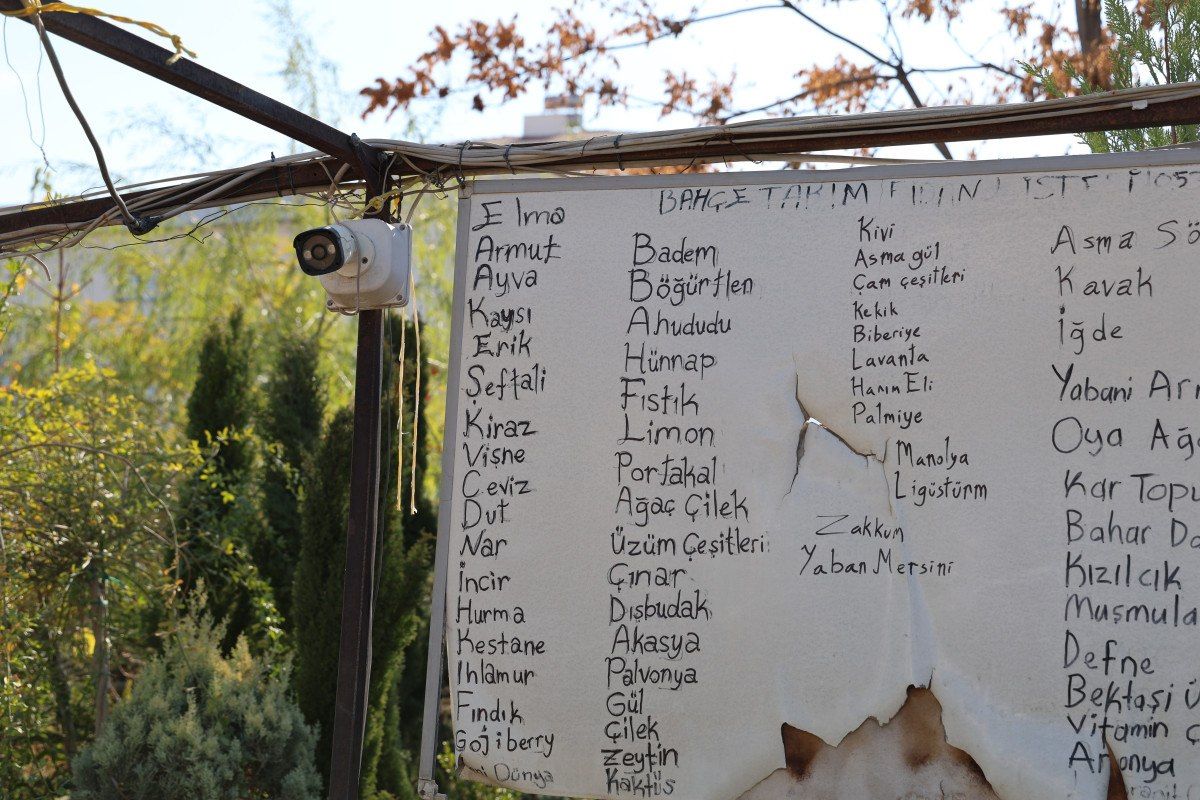 BAHÇE TAKIM
Elma
Armut
Ayva
Kaysı
Erik
Şeftali
Kiraz
Vişne
Ceviz
Dut
Nar
İncir
Hurma
Kestane
Ihlamur
Fındık
Gojiberry
Dünya
Badem
Böğürtlen
Ahududu
Hünnap
Fıstık
Limon
Portakal
Ağaç Çilek
Üzüm Çeşitleri
Çınar
Dışbudak
Akasya
Palvonya
Gül
Çilek
Zeytin
Kaktüs
Kivi
Asma gül
Çam çeşitleri
Kekik
Biberiye
Lavanta
Hanım Eli
Palmiye
Manolya
Ligüstürm
Zakkum
Yaban Mersini
Asma Sö
Kavak
İğde
Yabani Ar
Oya Ağ
Kar Topu
Bahar Da
Kızılcık
Muşmula
Defne
Bektaşi Ü
Vitamin Ç
Aronya